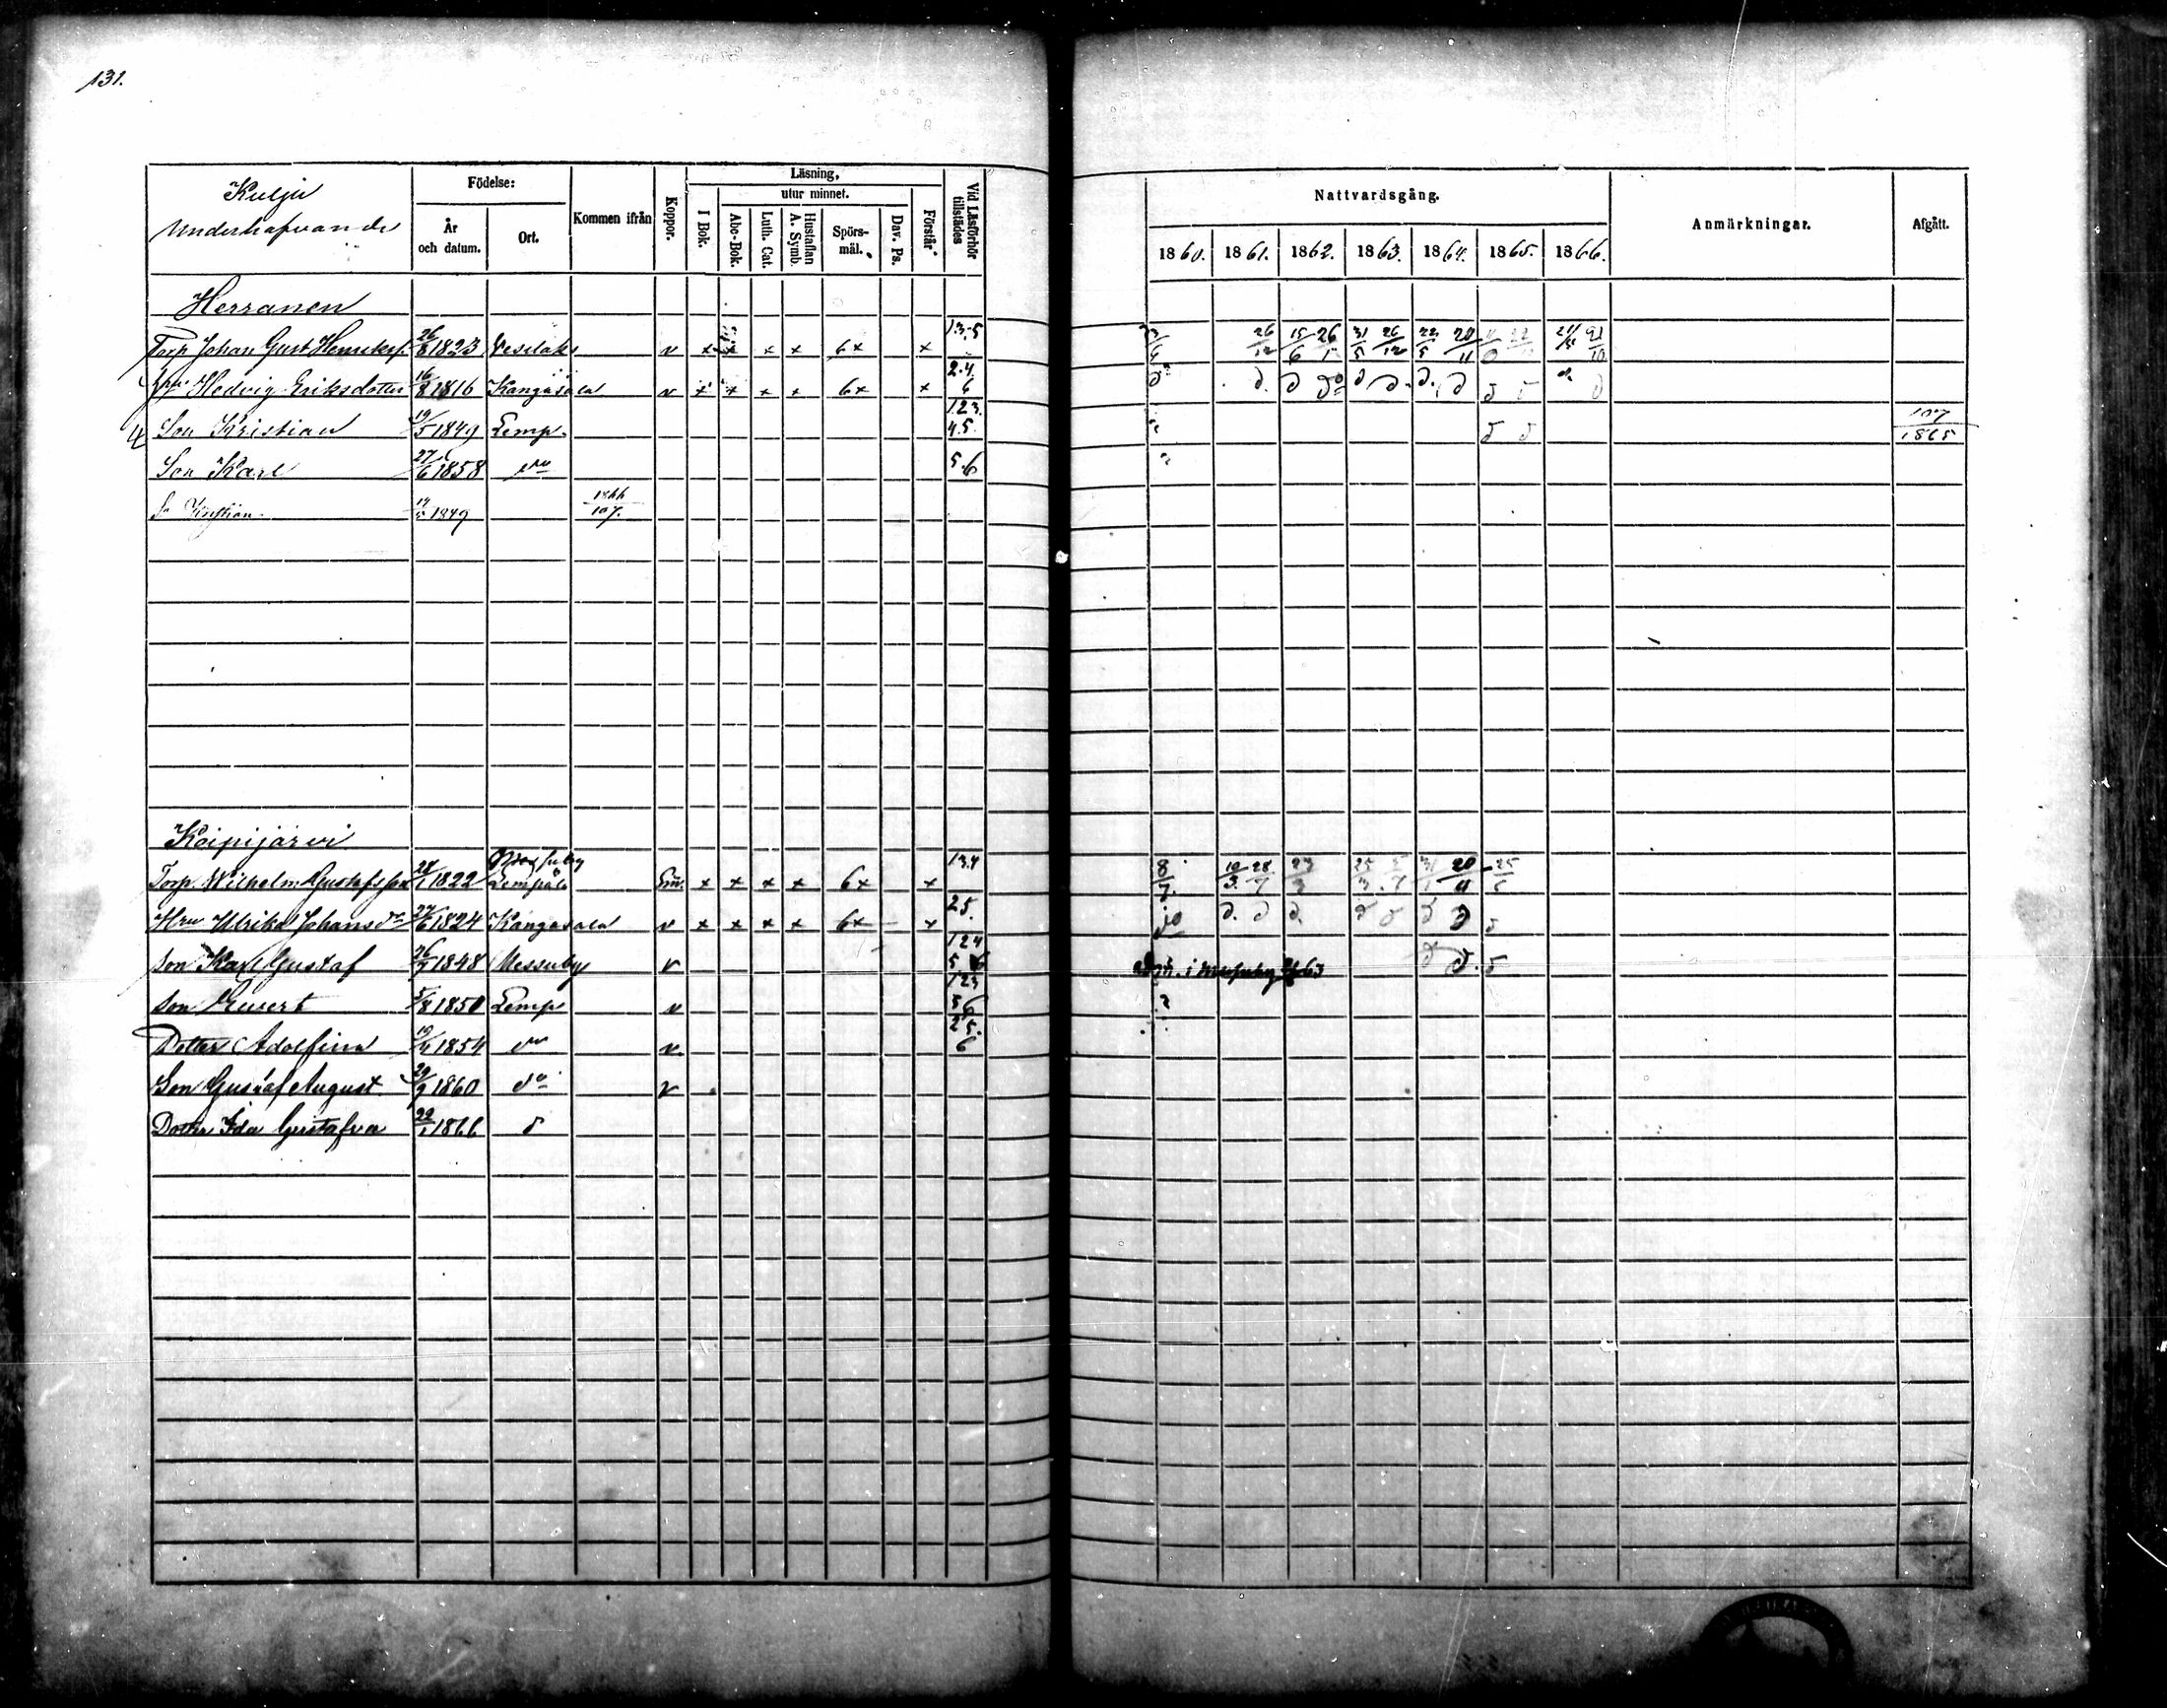 131.
Kulju
Underhafvande
Födelse:
År och datum.
Ort.
Kommen ifrån
Koppor.
Läsning,
I Bok.
utur minnet.
Abc-Bok.
Luth. Cat.
Hustaflan A. Symb.
Spörs-mål.
Dav. Ps.
Förstår
Vid Läsförhör tillstädes
Nattvardsgång.
1860. 1861. 1862. 1863. 1864. 1865. 1866.
Anmärkningar.
Afgått.
Herranen
Torp Johan Gust Henriksf. 26/8 1823 Vesilaks v x x x x 6x x 1.3.5 26/12 15/6 26 31/5 26/12 22/5 20/11
Hru Hedvig Eriksdotter 16/8 1816 Kangasala v x x x x 6x x 2.4. 6
Son Kristian 19/5 1849 Lemp. 1.2.3. 4.5. 107/1865
Son Karl 27/6 1858 do 5.6
So Kristian 19/5 1849 1866/107.
Koipijärvi
Torp. Wilhelm Gustafsson 24/1 1822 Lempälä x x x x 6x x 1.3.4 8/7. 10/3. 28/7 23/3 20/11
Hru Ulrika Johansdr 24/6 1824 Kangasala v x x x x 6x x 2.5. do
Son Karl Gustaf 26/7 1848 Messuby v 1 2 4 5 6 i Messuby 63
Son Evert 5/8 1850 Lemp v 1 2 3 5 6
Dotter Adolfina 19/4 1854 do v 2 5. 6
Son Gustaf August 29/9 1860 do v
Dotter Ida Gustafva 22/1 1866 d